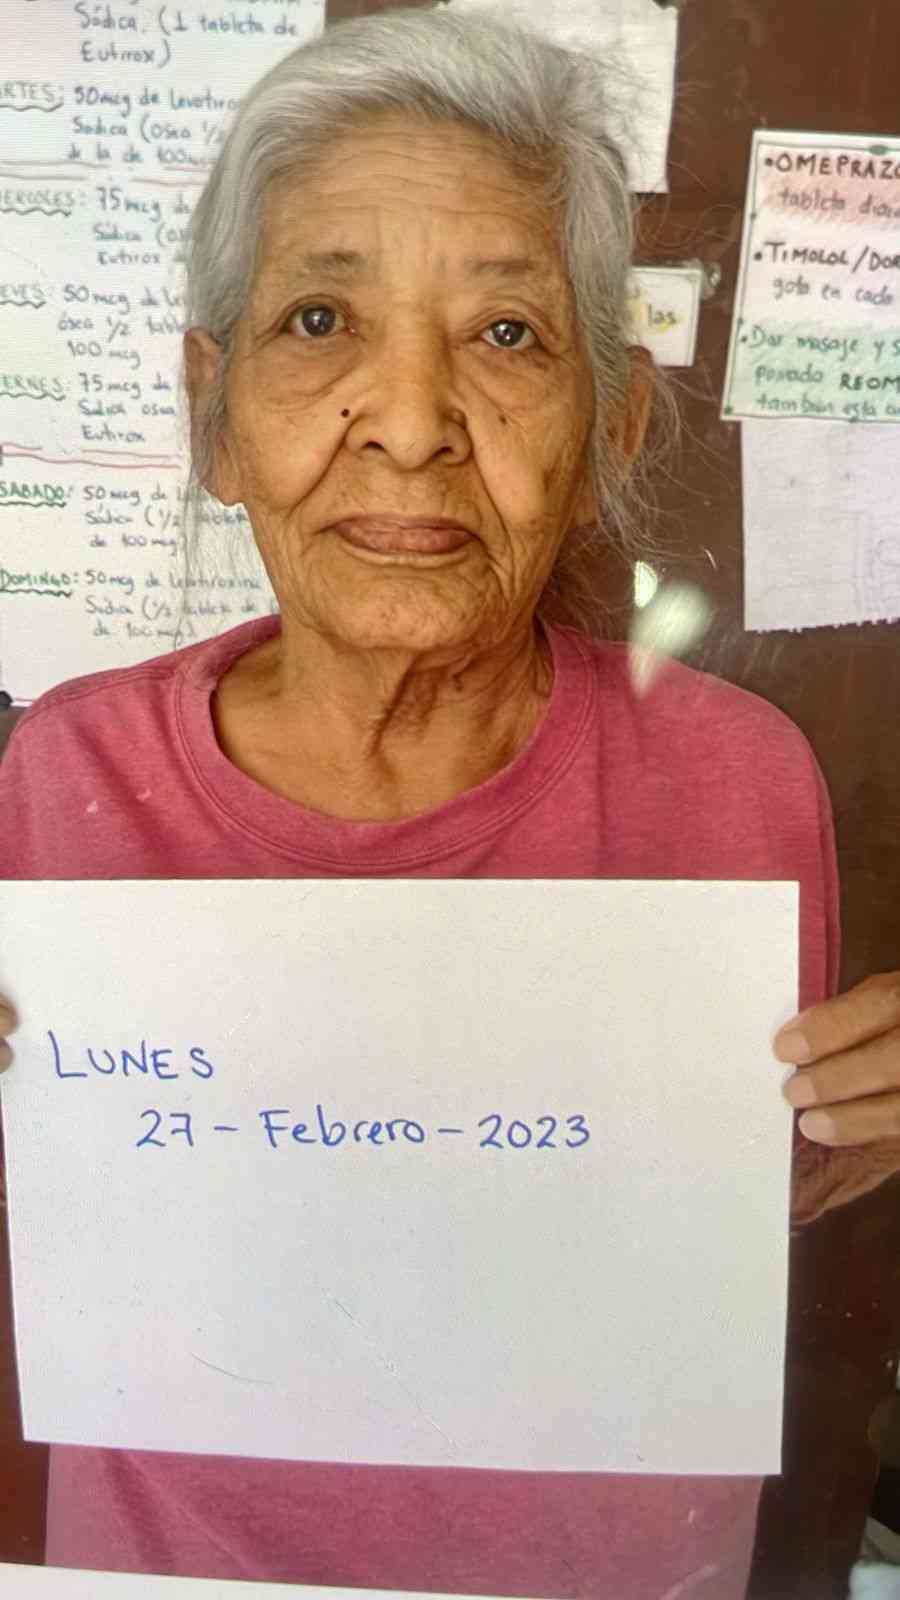 Sódica. (1 tableta de
Eutirox)
50mcg de
Sódica (osea 1/2
de la de 100
75mcg de
Sódica
Eutirox
50 mcg de
ósea 1/2
100 mcg
75mcg de
Sódica osea
Eutirox
SABADO: 50 mcg de
Sódica (1/2 tableta
de 100 mcg)
DOMINGO: 50mcg de Levotiroxina
Sódica (1/2 tableta de
de 100 mcg)
las
•OMEPRAZO
tableta
•TIMOLOL/DOR
gota en cada
•Dar masaje y
pomada REOM
también está
LUNES
27 - Febrero - 2023